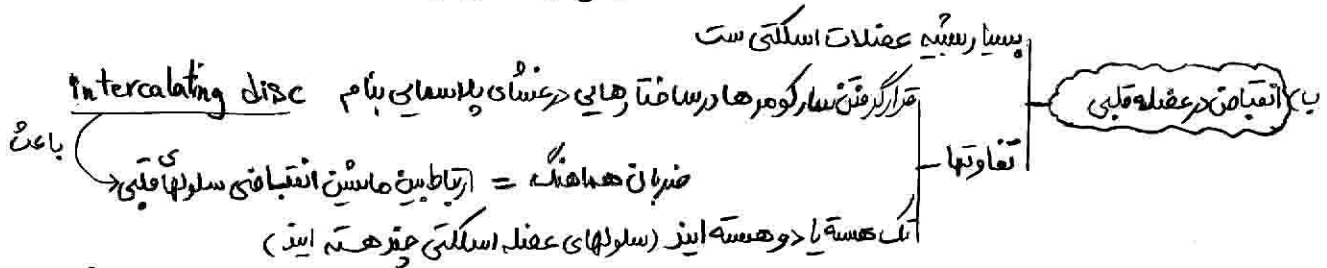 بسیار شبیه عضلات اسکلتی ست
ب) انقباض در عضله قلبی
قرار گرفتن سارکومرها در ساختارهایی در غشای پلاسمایی بنام intercalating disc
باعث
تفاوتها
ضربان هماهنگ = ارتباط بین ماشین انقباضی سلولهای قلبی
تک هسته یا دو هسته ایند (سلولهای عضله اسکلتی چند هسته ایند)